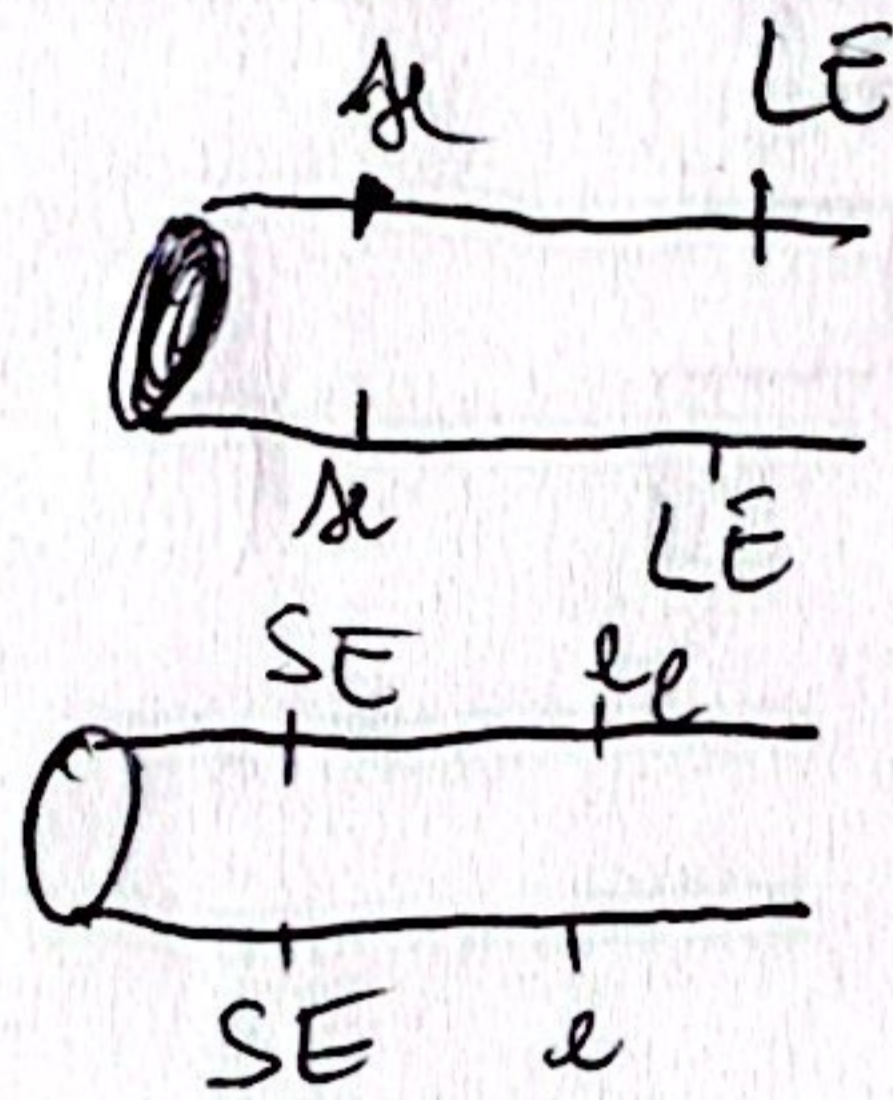 se LE
se LE
SE le
SE e